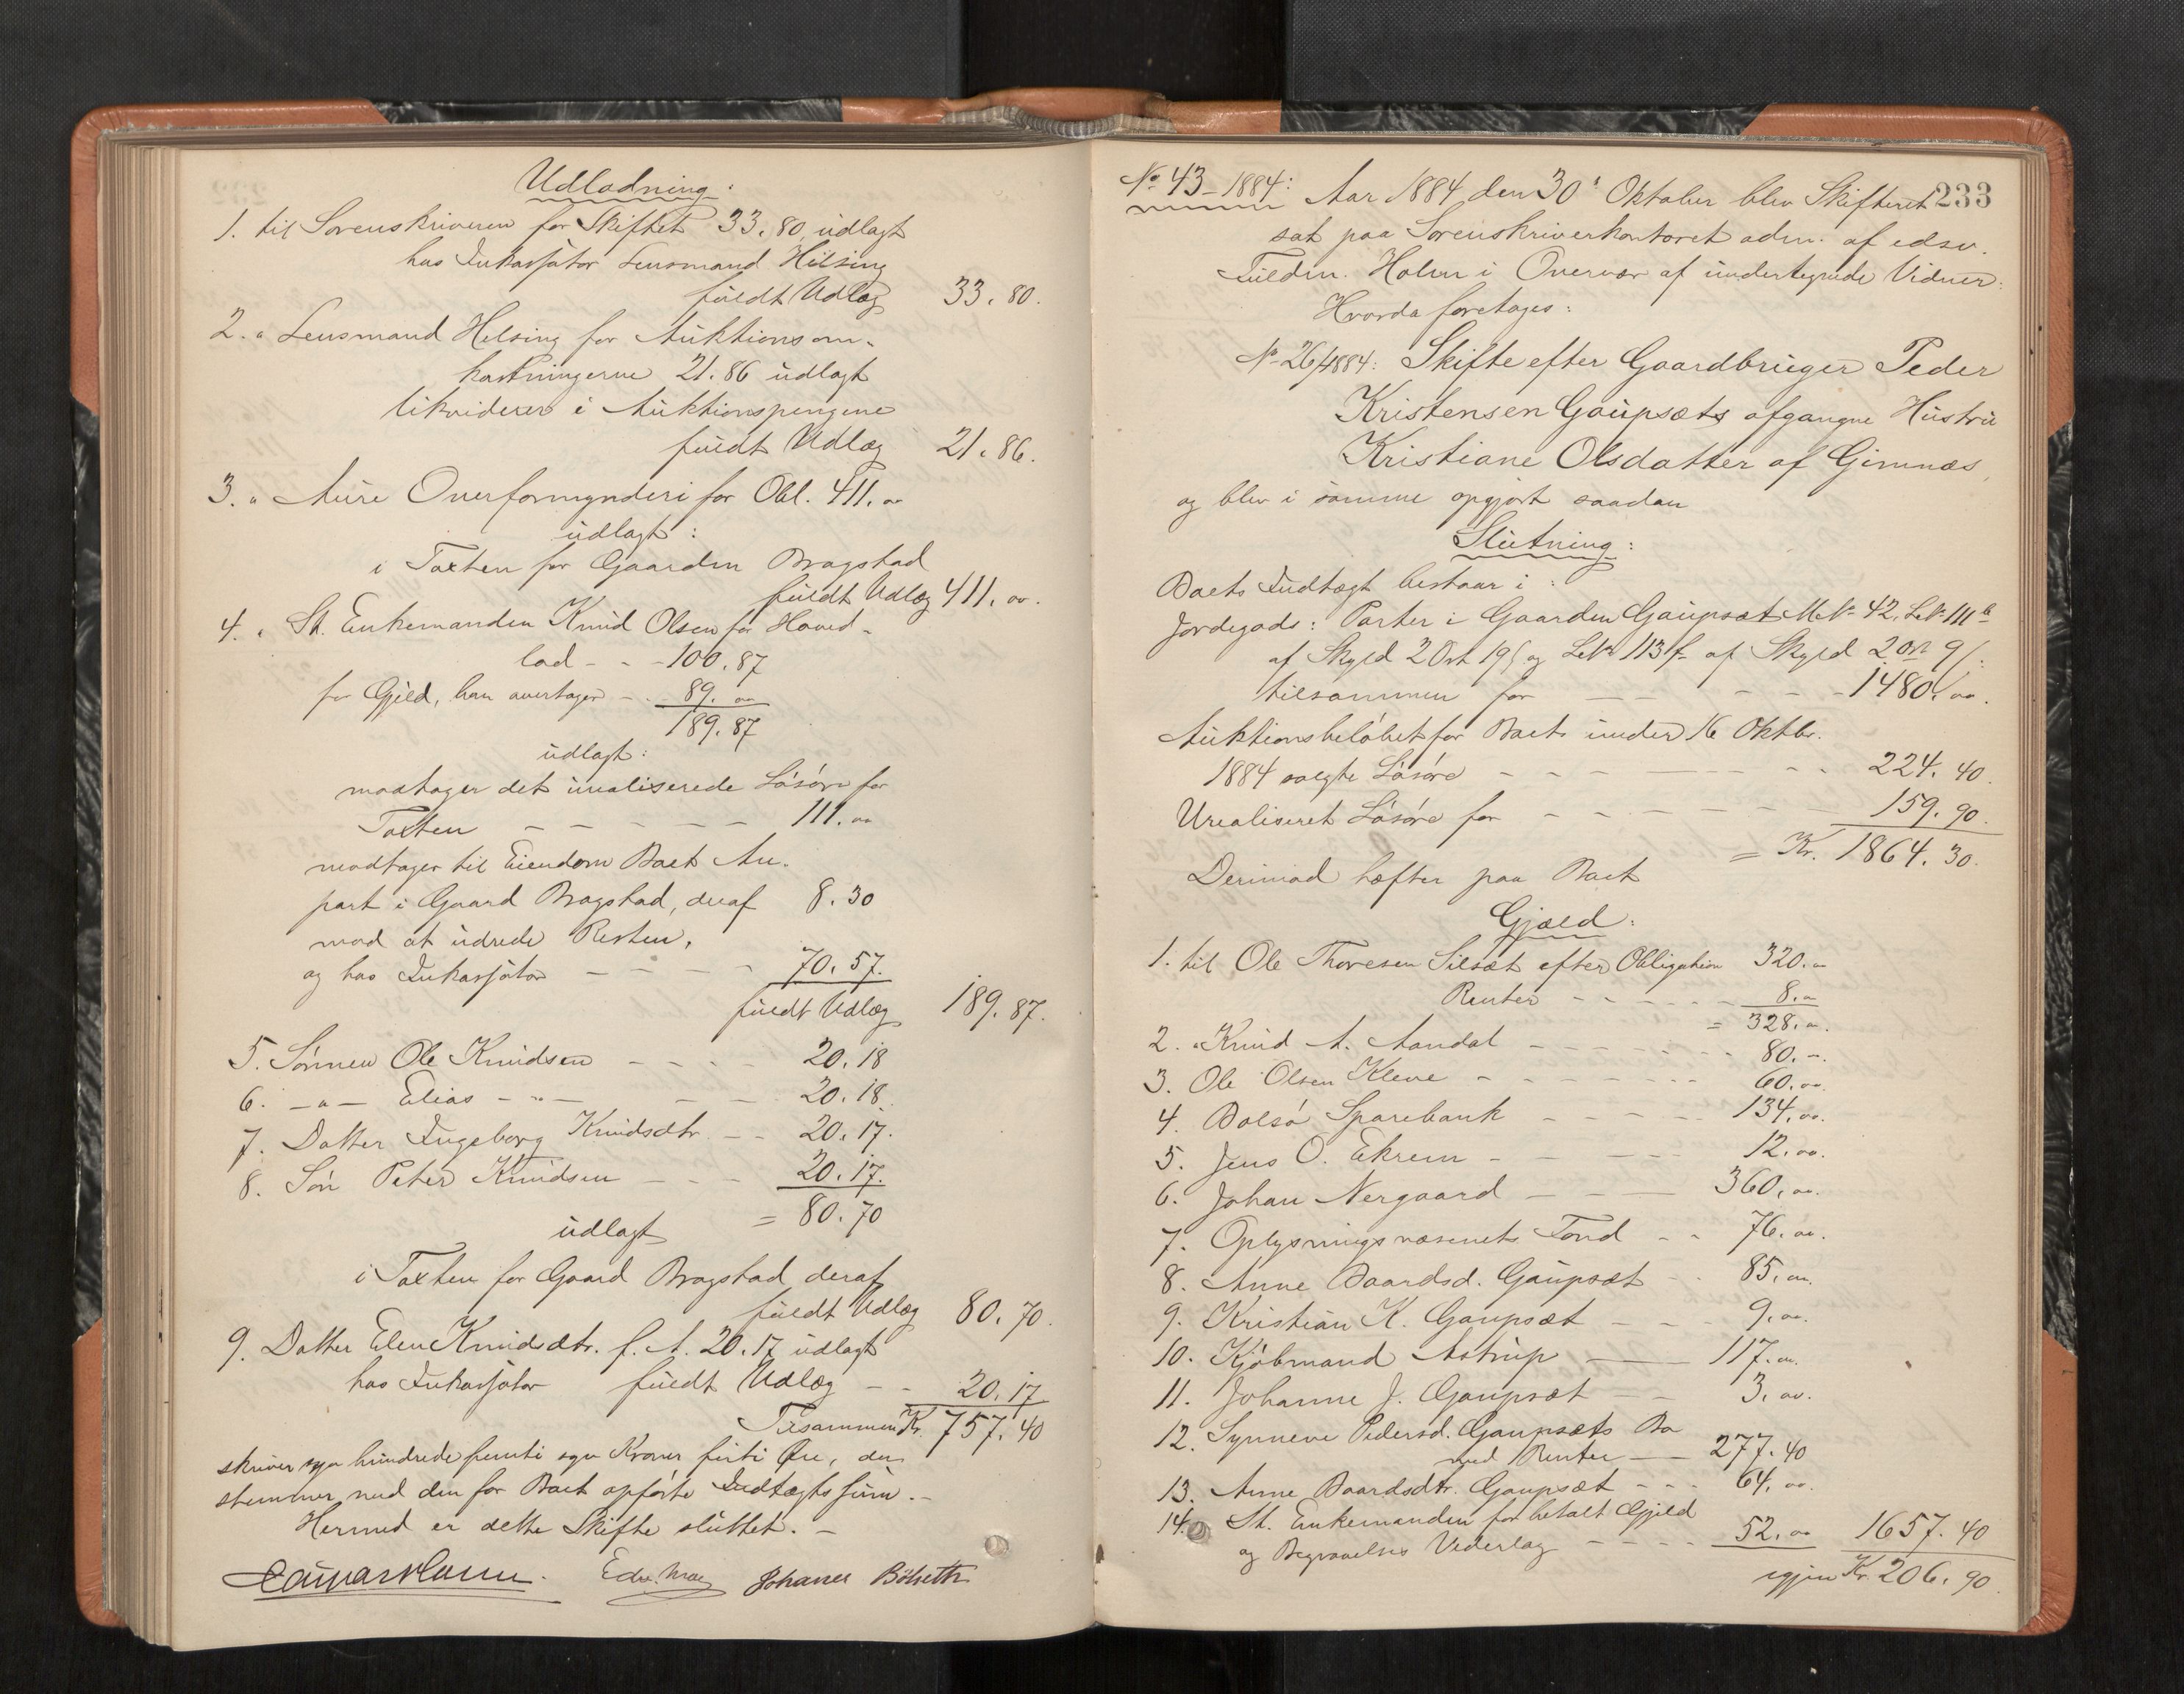 Udlodning:
1. til Sorenskriveren for Skiftet 33.80 udlagt
hos Inkassator Lensmand Helsing
fuldt Udlæg 33.80.
2. " Lensmand Helsing for Auktionsom-
kostningerne 21.86 udlagt
likviderer i Auktionspengene
fuldt Udlæg 21.86.
3. " Aure Overformynderi for Obl. 411.00
udlagt:
i Taxten for Gaarden Bragstad
fuldt Udlæg 411.00.
4. " St. Enkemanden Knud Olsen for Hoved-
lod - - - 100.87
for Gjæld, han overtager - . 89.00
189.87
udlagt:
modtager det urealiserede Løsøre for
Taxten - - - - - 111.00
modtager til Eiendom Boets An-
part i Gaard Bragstad, deraf 8.30
mod at udrede Resten.
og hos Inkassator - - - - 70.57.
fuldt Udlæg 189.87.
5. Sønnen Ole Knudsen - - - 20.18
6. -"- Elias -"- - - 20.18.
7. Datter Ingeborg Knudsdtr. - - 20.17.
8. Søn Peter Knudsen - - - 20.17.
udlagt = 80.70
i Taxten for Gaard Bragstad deraf
fuldt Udlæg 80.70.
9. Datter Elen Knudsdtr. f. A. 20.17 udlagt
hos Inkassator fuldt Udlæg - - 20.17
Tilsammen Kr. 757.40
skriver syv hundrede femti syv Kroner firti Øre, der
stemmer med den for Boet opførte Indtægtssum.-
Hermed er dette Skifte sluttet. -
Edvard Holm. Johanes Bølseth
233
No 43-1884: Aar 1884 den 30' Oktober blev Skifteret
sat paa Sorenskriverkontoret adm. af edsv.
Fuldm. Holm i Overvær af undertegnede Vidner.
Hvorda foretoges:
No 26/1884: Skifte efter Gaardbruger Peder
Kristensen Gaupsæts afgangne Hustru
Kristiane Olsdatter af Gimnæs,
og blev i samme opgjort saadan
Slutning:
Boets Indtægt bestaar i:
Jordegods: Parter i Gaarden Gaupsæt M.No 42, L.No 111 b
af Skyld 2 Ort 19ß og L.No 113 f af Skyld 2 Ort 9ß:
tilsammen for - - - - - 1480.00.
Auktionsbeløbet for Boets under 16 Oktbr.
1884 solgte Løsøre - - - - - - - 224.40.
Urealiseret Løsøre for - - - - - 159.90.
= Kr. 1864.30.
Derimod hæfter paa Boet
Gjæld:
1. til Ole Thoresen Silsæt efter Obligation 320.00
Renter - - - - - 8.00
= 328.00.
2. " Knud A. Aandal - - - - - - 80.-.
3. Ole Olsen Kleve - - - - - - 60.00.
4. Bolsø Sparebank - - - - 134.00.
5. Jens O. Ekrem - - - - - 12.00.
6. Johan Nergaard - - - 360.00.
7. Oplysningsvæsenets Fond - - 76.00.
8. Anne Baardsd. Gaupsæt - . 85.00.
9. Kristian K. Gaupsæt - - - 9.00.
10. Kjøbmand Astrup - - 117.00.
11. Johanne J. Gaupsæt - - 3.00.
12. Synneve Pedersd. Gaupsæts Bo
med Renter - 277.40
13. Anne Baardsdtr. Gaupsæt - - - 64.00.
14. St. Enkemanden for betalt Gjæld
og Begravelses Vederlag - - - - 52.00 1657.40
igjen Kr. 206.90.